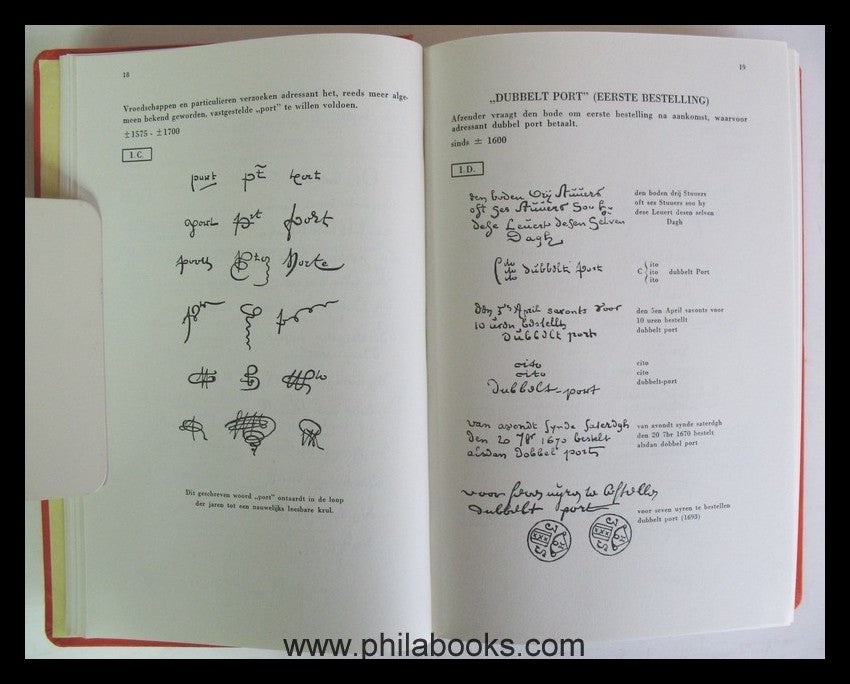 18
Vroedschappen en particulieren verzoeken adressant het, reeds meer alge-
meen bekend geworden, vastgestelde „port” te willen voldoen.
±1575 - ±1700
I.C.
port
port
Dit geschreven woord „port” ontaardt in de loop
der jaren tot een nauwelijks leesbare krul.
19
„DUBBELT PORT” (EERSTE BESTELLING)
Afzender vraagt den bode om eerste bestelling na aankomst, waarvoor
adressant dubbel port betaalt.
sinds ± 1600
I.D.
den boden drij Stuuers
oft ses Stuuers soo hy
dese Leuert desen selven
Dagh
den boden drij Stuuers
oft ses Stuuers soo hy
dese Leuert desen selven
Dagh
C ito ito ito dubbelt port
C ito ito ito dubbelt Port
den 5en April savonts voor
10 uren bestellt
dubbelt port
den 5en April savonts voor
10 uren bestellt
dubbelt port
cito
cito
dubbelt-port
cito
cito
dubbelt-port
van avondt synde saterdgh
den 20 7br 1670 bestelt
alsdan dobbel port
van avondt synde saterdgh
den 20 7br 1670 bestelt
alsdan dobbel port
voor seven uyren te bestellen
dubbelt port
voor seven uyren te bestellen
dubbelt port (1693)
www.philabooks.com